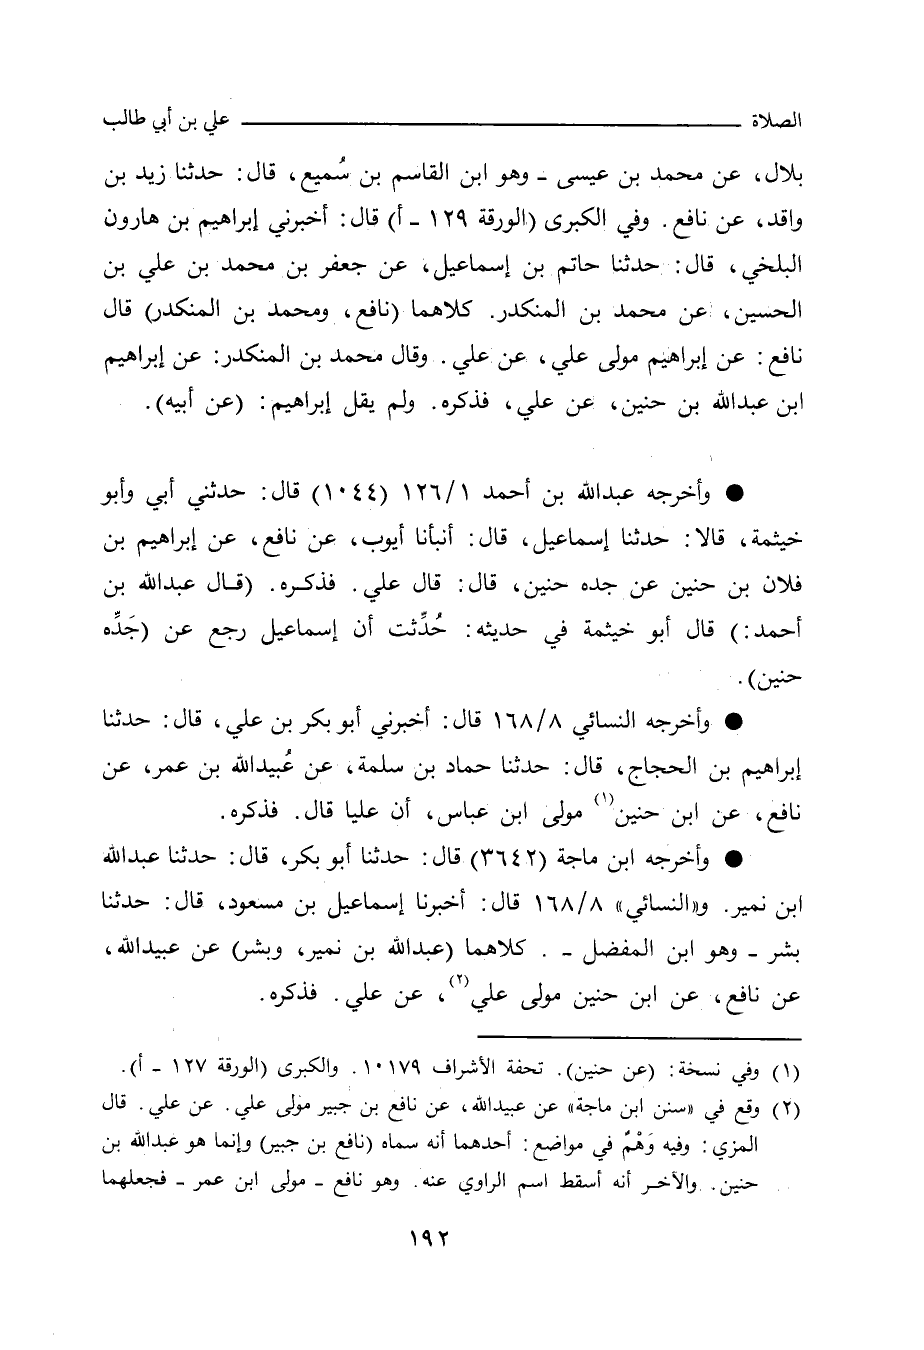 الصلاة ــــــــــ علي بن أبي طالب
بلال، عن محمد بن عيسى - وهو ابن القاسم بن سُميع، قال: حدثنا زيد بن
واقد، عن نافع. وفي الكبرى (الورقة ١٢٩ - أ) قال: أخبرني إبراهيم بن هارون
البلخي، قال: حدثنا حاتم بن إسماعيل، عن جعفر بن محمد بن علي بن
الحسين، عن محمد بن المنكدر. كلاهما (نافع، ومحمد بن المنكدر) قال
نافع: عن إبراهيم مولى علي، عن علي. وقال محمد بن المنكدر: عن إبراهيم
ابن عبدالله بن حنين، عن علي، فذكره. ولم يقل إبراهيم: (عن أبيه).
● وأخرجه عبدالله بن أحمد ١٢٦/١ (١٠٤٤) قال: حدثني أبي وأبو
خيثمة، قالا: حدثنا إسماعيل، قال: أنبأنا أيوب، عن نافع، عن إبراهيم بن
فلان بن حنين عن جده حنين، قال: قال علي. فذكره. (قال عبدالله بن
أحمد:) قال أبو خيثمة في حديثه: حُدِّثت أن إسماعيل رجع عن (جَدِّه
حنين).
● وأخرجه النسائي ١٦٨/٨ قال: أخبرني أبو بكر بن علي، قال: حدثنا
إبراهيم بن الحجاج، قال: حدثنا حماد بن سلمة، عن عُبيدالله بن عمر، عن
نافع، عن ابن حنين(١) مولى ابن عباس، أن عليا قال. فذكره.
● وأخرجه ابن ماجة (٣٦٤٢) قال: حدثنا أبو بكر، قال: حدثنا عبدالله
ابن نمير. و«النسائي» ١٦٨/٨ قال: أخبرنا إسماعيل بن مسعود، قال: حدثنا
بشر - وهو ابن المفضل - . كلاهما (عبدالله بن نمير، وبشر) عن عبيدالله،
عن نافع، عن ابن حنين مولى علي(٢)، عن علي. فذكره.
(١) وفي نسخة: (عن حنين). تحفة الأشراف ١٠١٧٩. والكبرى (الورقة ١٢٧ - أ).
(٢) وقع في «سنن ابن ماجة» عن عبيدالله، عن نافع بن جبير مولى علي. عن علي. قال
المزي: وفيه وَهْمٌ في مواضع: أحدهما أنه سماه (نافع بن جبير) وإنما هو عبدالله بن
حنين. والآخر أنه أسقط اسم الراوي عنه. وهو نافع - مولى ابن عمر - فجعلهما
١٩٢